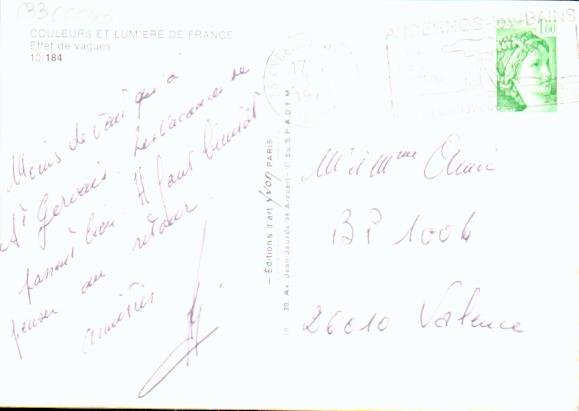 COULEURS ET LUMIERE DE FRANCE
Effet de vagues
10/184
Moins de vent qu'à
St Gervais. Les vacances se
passent bien. Il faut bientôt
penser au retour.
amitiés
— Éditions d'art yvon PARIS
30, Av. Jean-Jaurès 94 Arcueil - © by S.P.A.D.E.M.
ANDERNOS-LES-BAINS
1.00
M et Mme
BP 1004
26010 Valence